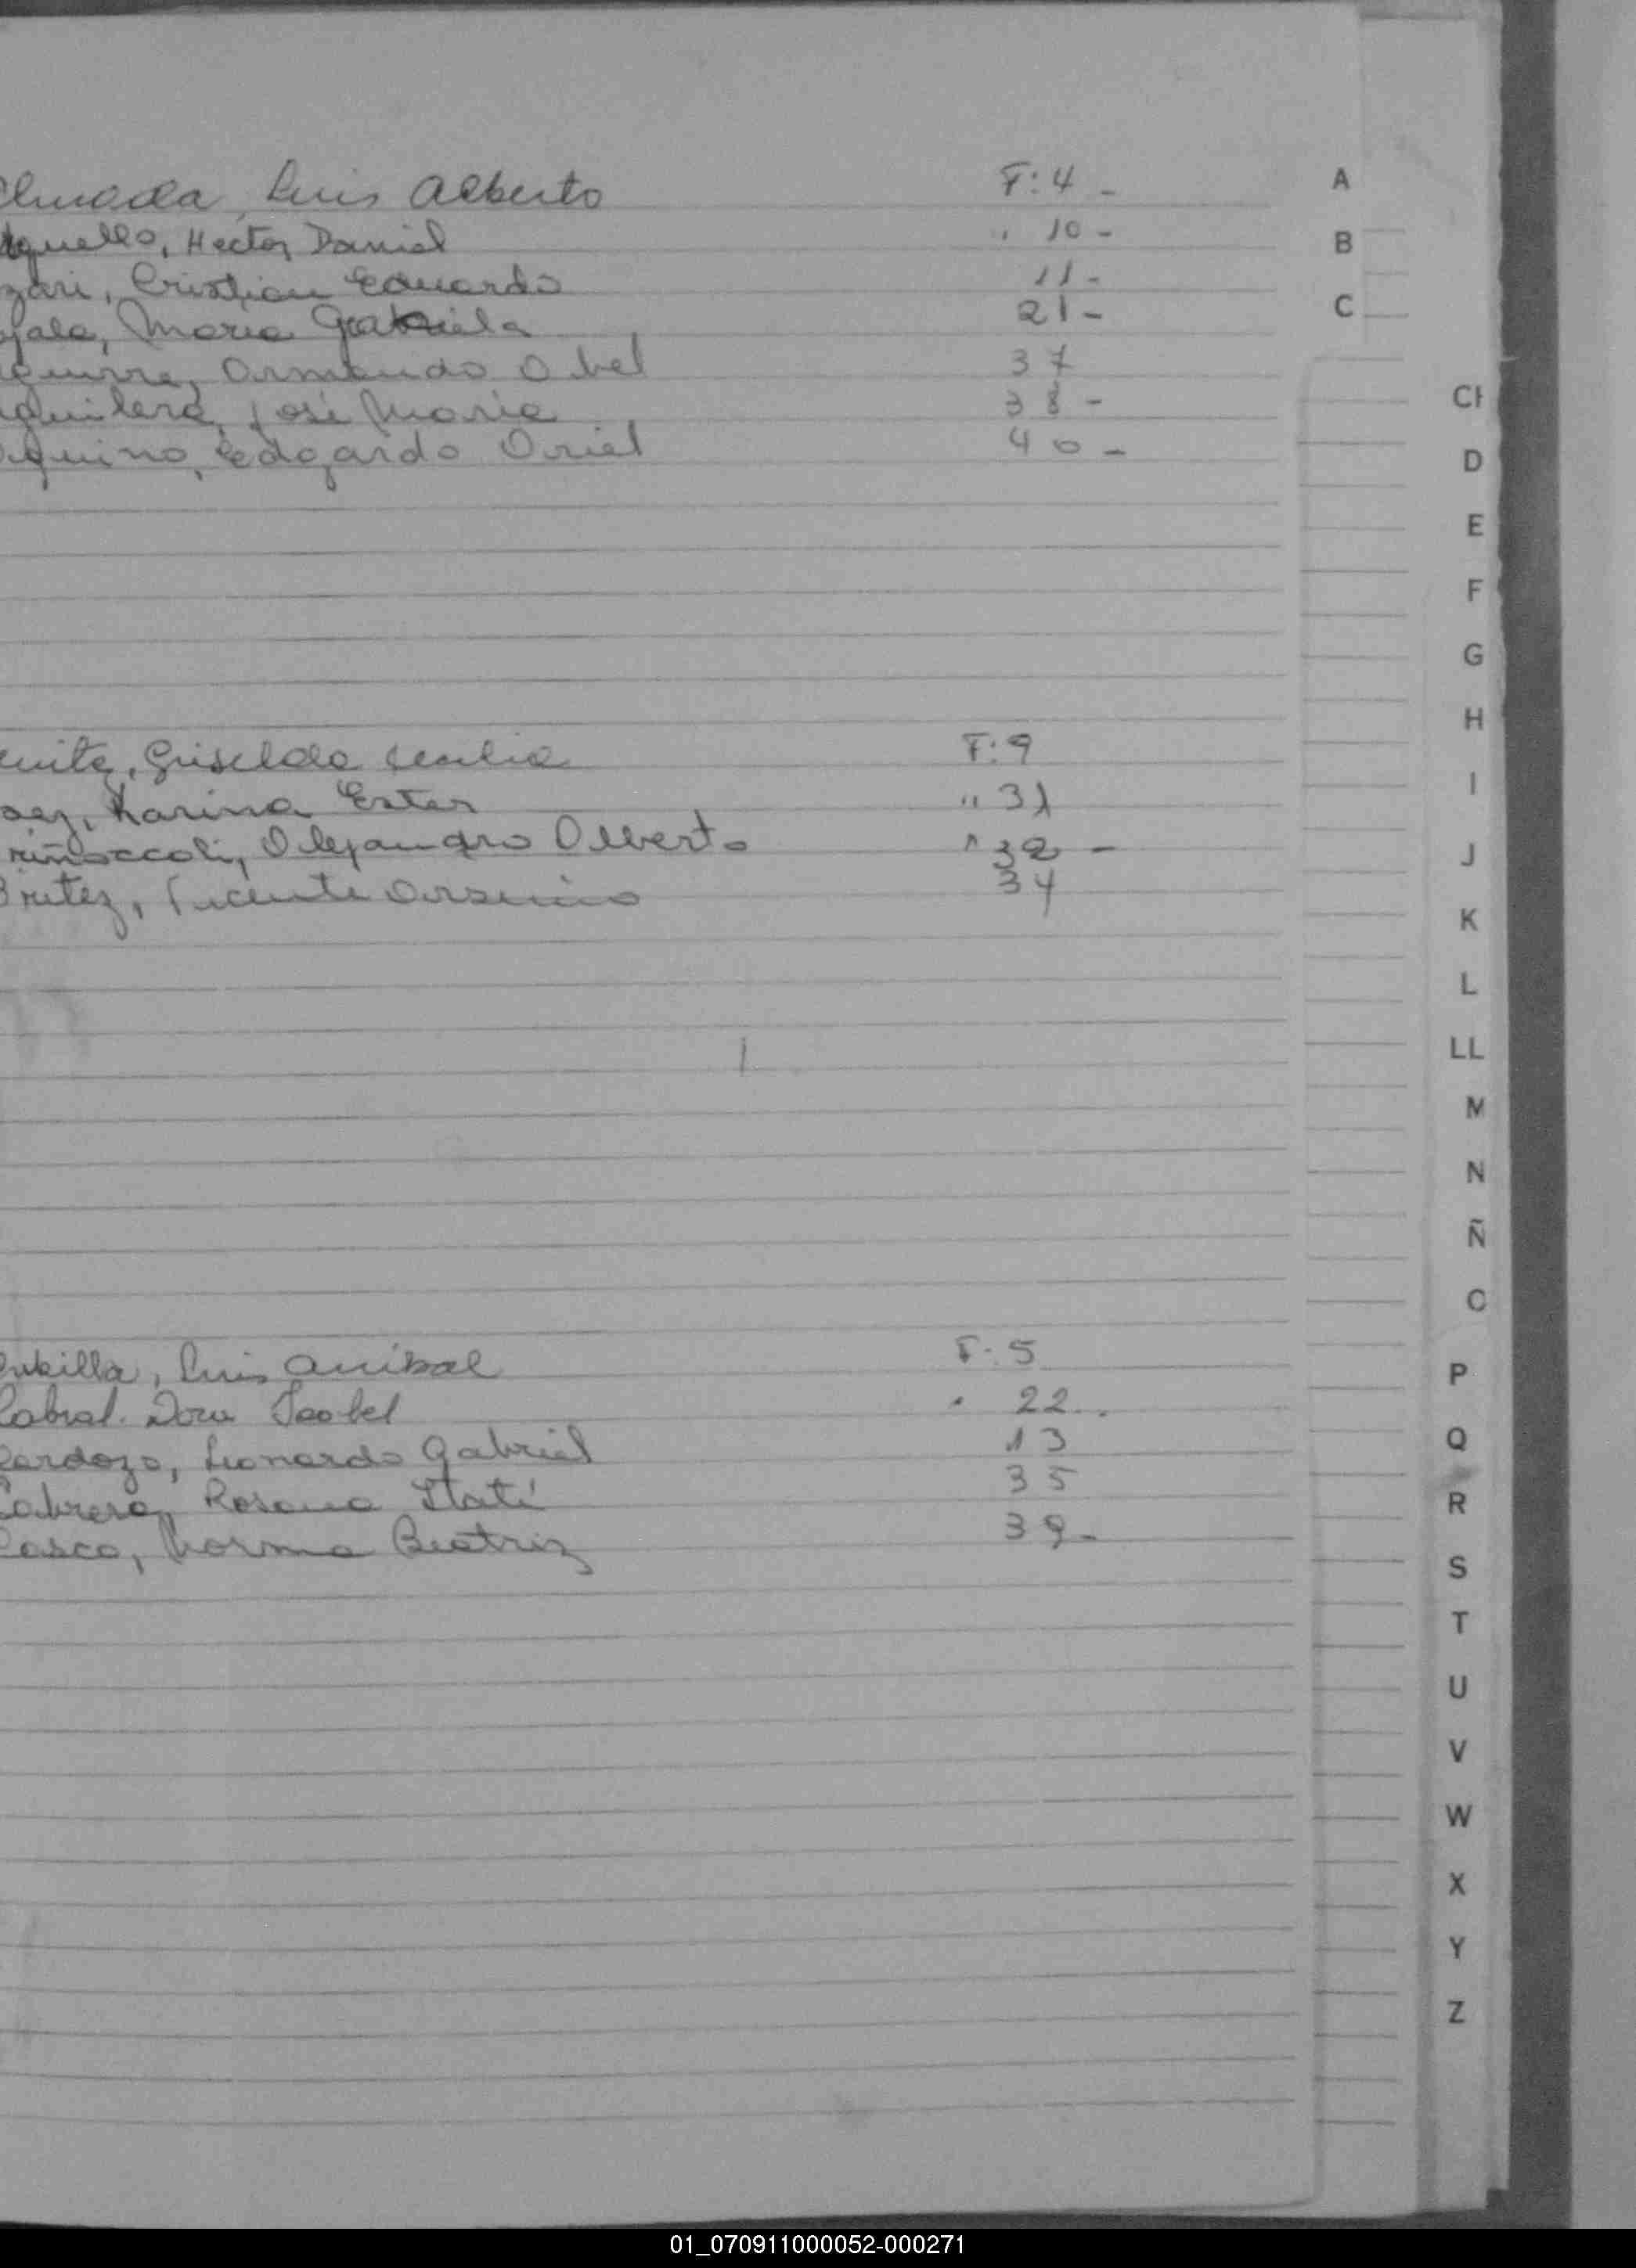 lmada, Luis Alberto F: 4 -
Arguello, Hector Daniel " 10 -
zari, Cristian Eduardo 11 -
yala, Maria Gabriela 21 -
guirre, Armando Abel 37
guilera, José Maria 38 -
quino, Edgardo Ariel 40 -
enitez, Griselda Cecilia F: 9
aez, Karina Ester " 31
riñoccoli, Alejandro Alberto " 32 -
Britez, Vicente Arsenio 34
ubilla, Luis Anibal F: 5
Cabral. Dora Isabel " 22.
Cardozo, Leonardo Gabriel 13
Cabrera, Rosana Itatí 35
Casco, Norma Beatriz 39 -
A
B
C
CH
D
E
F
G
H
I
J
K
L
LL
M
N
Ñ
O
P
Q
R
S
T
U
V
W
X
Y
Z
01_070911000052-000271